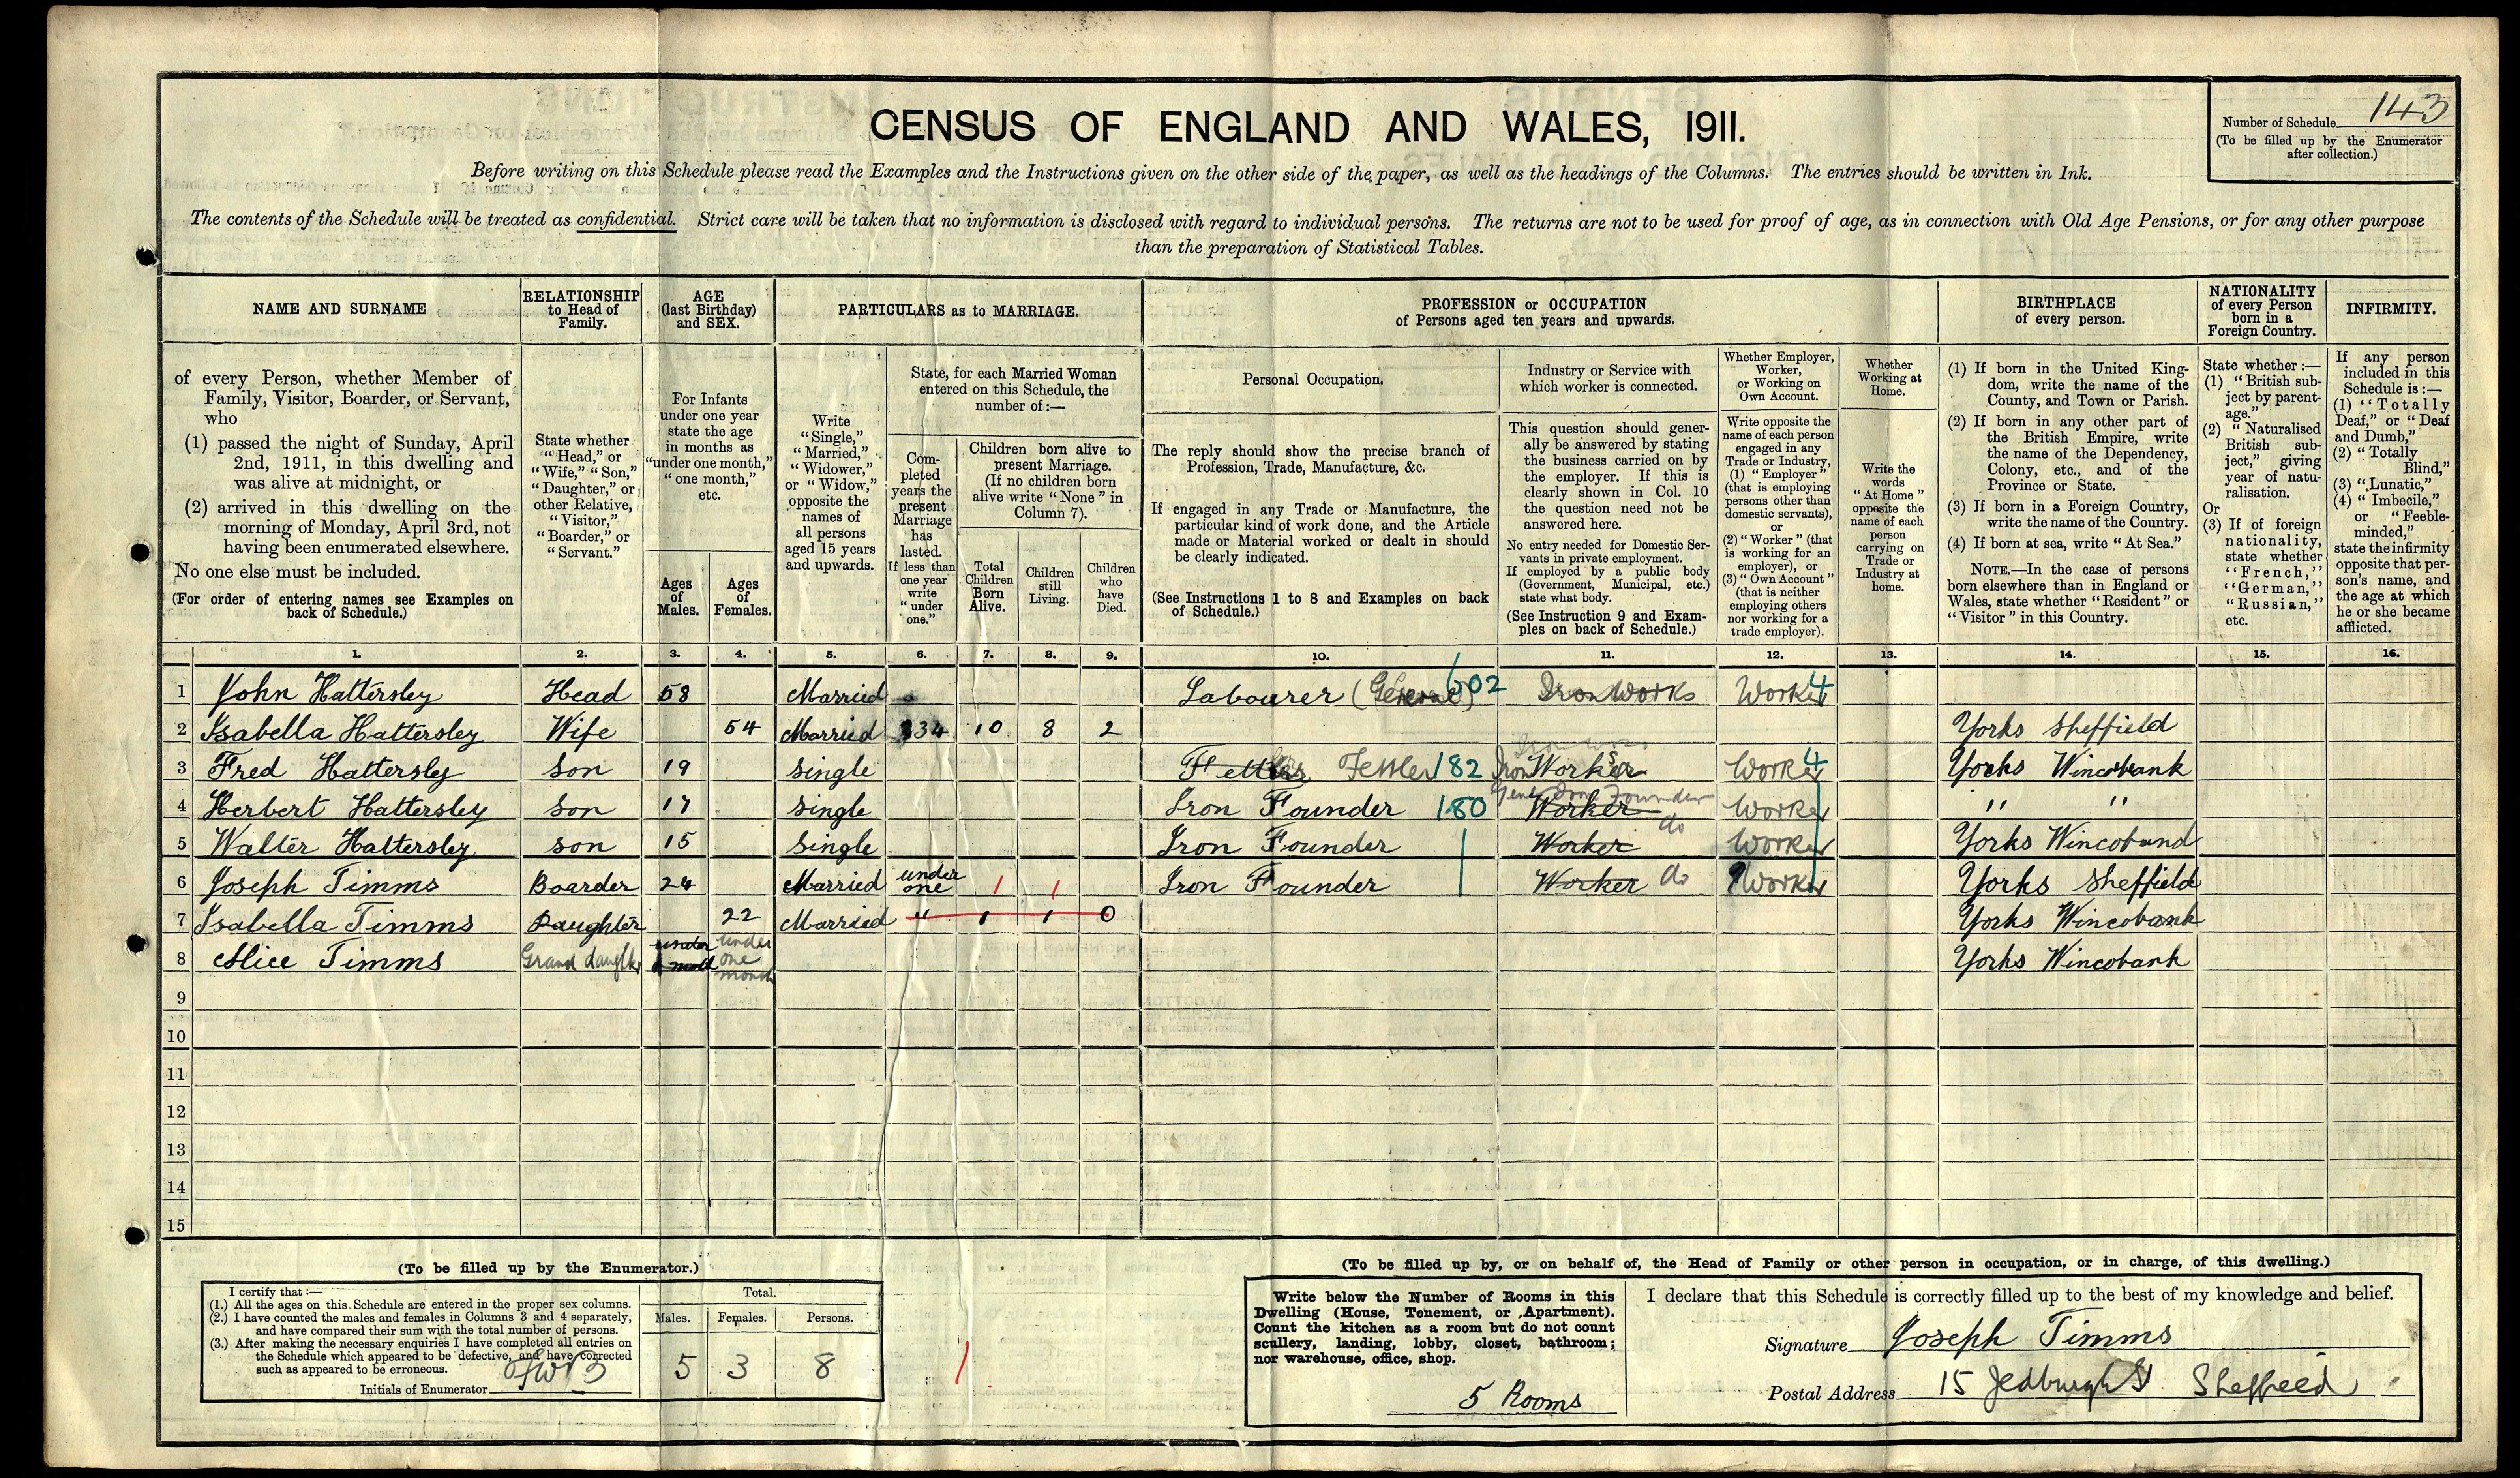 CENSUS OF ENGLAND AND WALES, 1911.
Number of Schedule 143
(To be filled up by the Enumerator
after collection.)
Before writing on this Schedule please read the Examples and the Instructions given on the other side of the paper, as well as the headings of the Columns. The entries should be written in Ink.
The contents of the Schedule will be treated as confidential. Strict care will be taken that no information is disclosed with regard to individual persons. The returns are not to be used for proof of age, as in connection with Old Age Pensions, or for any other purpose
than the preparation of Statistical Tables.
NAME AND SURNAME
of every Person, whether Member of
Family, Visitor, Boarder, or Servant,
who
(1) passed the night of Sunday, April
2nd, 1911, in this dwelling and
was alive at midnight, or
(2) arrived in this dwelling on the
morning of Monday, April 3rd, not
having been enumerated elsewhere.
No one else must be included.
(For order of entering names see Examples on
back of Schedule.)
RELATIONSHIP
to Head of
Family.
State whether
"Head," or
"Wife," "Son,"
"Daughter," or
other Relative,
"Visitor,"
"Boarder," or
"Servant."
AGE
(last Birthday)
and SEX.
For Infants
under one year
state the age
in months as
"under one month,"
"one month,"
etc.
Ages
of
Males.
Ages
of
Females.
PARTICULARS as to MARRIAGE.
Write
"Single,"
"Married,"
"Widower,"
or "Widow,"
opposite the
names of
all persons
aged 15 years
and upwards.
State, for each Married Woman
entered on this Schedule, the
number of:—
Com-
pleted
years the
present
Marriage
has
lasted.
If less than
one year
write
"under
one."
Children born alive to
present Marriage.
(If no children born
alive write "None" in
Column 7).
Total
Children
Born
Alive.
Children
still
Living.
Children
who
have
Died.
PROFESSION or OCCUPATION
of Persons aged ten years and upwards.
Personal Occupation.
The reply should show the precise branch of
Profession, Trade, Manufacture, &c.
If engaged in any Trade or Manufacture, the
particular kind of work done, and the Article
made or Material worked or dealt in should
be clearly indicated.
(See Instructions 1 to 8 and Examples on back
of Schedule.)
Industry or Service with
which worker is connected.
This question should gener-
ally be answered by stating
the business carried on by
the employer. If this is
clearly shown in Col. 10
the question need not be
answered here.
No entry needed for Domestic Ser-
vants in private employment.
If employed by a public body
(Government, Municipal, etc.)
state what body.
(See Instruction 9 and Exam-
ples on back of Schedule.)
Whether Employer,
Worker,
or Working on
Own Account.
Write opposite the
name of each person
engaged in any
Trade or Industry,
(1) "Employer"
(that is employing
persons other than
domestic servants),
or
(2) "Worker" (that
is working for an
employer), or
(3) "Own Account"
(that is neither
employing others
nor working for a
trade employer).
Whether
Working at
Home.
Write the
words
"At Home"
opposite the
name of each
person
carrying on
Trade or
Industry at
home.
BIRTHPLACE
of every person.
(1) If born in the United King-
dom, write the name of the
County, and Town or Parish.
(2) If born in any other part of
the British Empire, write
the name of the Dependency,
Colony, etc., and of the
Province or State.
(3) If born in a Foreign Country,
write the name of the Country.
(4) If born at sea, write "At Sea."
NOTE.—In the case of persons
born elsewhere than in England or
Wales, state whether "Resident" or
"Visitor" in this Country.
NATIONALITY
of every Person
born in a
Foreign Country.
State whether:—
(1) "British sub-
ject by parent-
age."
(2) "Naturalised
British sub-
ject," giving
year of natu-
ralisation.
Or
(3) If of foreign
nationality,
state whether
"French,"
"German,"
"Russian,"
etc.
INFIRMITY.
If any person
included in this
Schedule is:—
(1) "Totally
Deaf," or "Deaf
and Dumb,"
(2) "Totally
Blind,"
(3) "Lunatic,"
(4) "Imbecile,"
or "Feeble-
minded,"
state the infirmity
opposite that per-
son's name, and
the age at which
he or she became
afflicted.
1. 2. 3. 4. 5. 6. 7. 8. 9. 10. 11. 12. 13. 14. 15. 16.
1 John Hattersley Head 58 Married Labourer (General) 602 Iron Works Worker 4
2 Isabella Hattersley Wife 54 Married 34 10 8 2 Yorks Sheffield
3 Fred Hattersley Son 19 Single Fettler 182 Iron Works Worker 4 Yorks Wincobank
4 Herbert Hattersley Son 17 Single Iron Founder 180 Worker Iron Founder Worker " "
5 Walter Hattersley Son 15 Single Iron Founder Worker do Worker Yorks Wincoband
6 Joseph Timms Boarder 24 Married under one 1 1 Iron Founder Worker do Worker Yorks Sheffield
7 Isabella Timms Daughter 22 Married " 1 1 0 Yorks Wincobank
8 Alice Timms Grand daughter under one month Yorks Wincobank
9
10
11
12
13
14
15
(To be filled up by the Enumerator.)
I certify that:—
(1.) All the ages on this Schedule are entered in the proper sex columns.
(2.) I have counted the males and females in Columns 3 and 4 separately,
and have compared their sum with the total number of persons.
(3.) After making the necessary enquiries I have completed all entries on
the Schedule which appeared to be defective, and have corrected
such as appeared to be erroneous.
Initials of Enumerator
Total.
Males. Females. Persons.
5 3 8
(To be filled up by, or on behalf of, the Head of Family or other person in occupation, or in charge, of this dwelling.)
Write below the Number of Rooms in this
Dwelling (House, Tenement, or Apartment).
Count the kitchen as a room but do not count
scullery, landing, lobby, closet, bathroom;
nor warehouse, office, shop.
5 Rooms
I declare that this Schedule is correctly filled up to the best of my knowledge and belief.
Signature Joseph Timms
Postal Address 15 Jedburgh St Sheffield